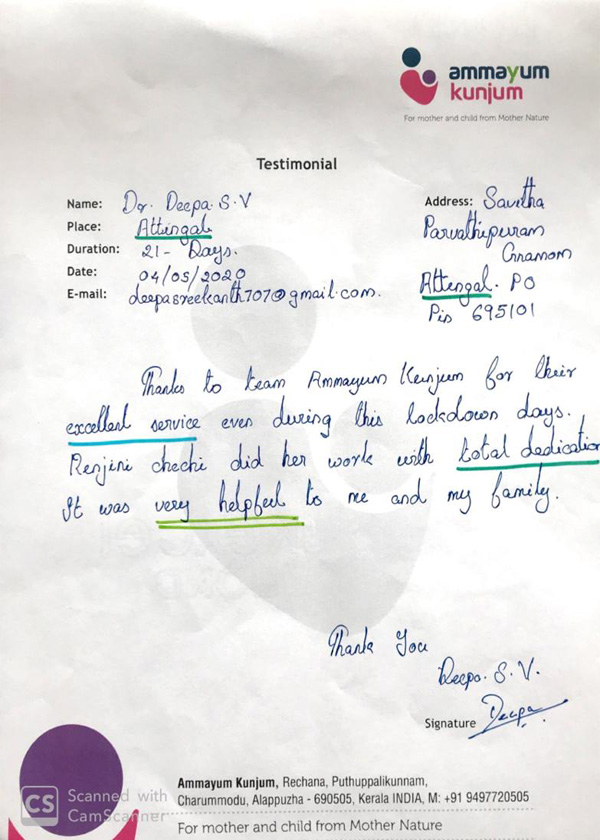 ammayum
kunjum
For mother and child from Mother Nature
Testimonial
Name: Dr. Deepa. S. V
Place: Attingal
Duration: 21 - Days.
Date: 04/05/2020
E-mail: deepasreekanth707@gmail.com.
Address: Savitha
Parvathipuram
Gramom
Attingal. PO
Pin 695101
Thanks to team Ammayum Kunjum for their
excellent service even during this lockdown days.
Renjini chechi did her work with total dedication
It was very helpful to me and my family.
Thank You
Deepa. S. V.
Signature Deepa
CS Scanned with
CamScanner
Ammayum Kunjum, Rechana, Puthuppalikunnam,
Charummodu, Alappuzha - 690505, Kerala INDIA, M: +91 9497720505
For mother and child from Mother Nature